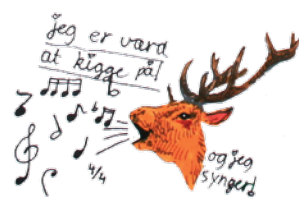 jeg er værd
at kigge på!
4/4
og jeg
synger!